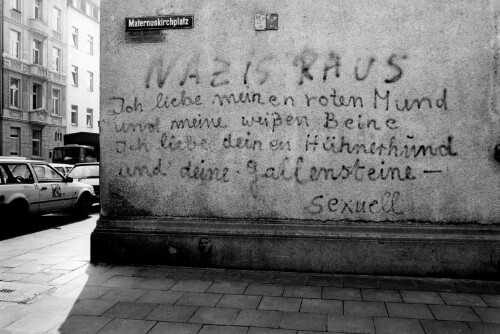 Maternuskirchplatz
NAZIS RAUS
Ich liebe meinen roten Mund
und meine weißen Beine
Ich liebe deinen Hühnerhund
und deine Gallensteine -
Sexuell
KS